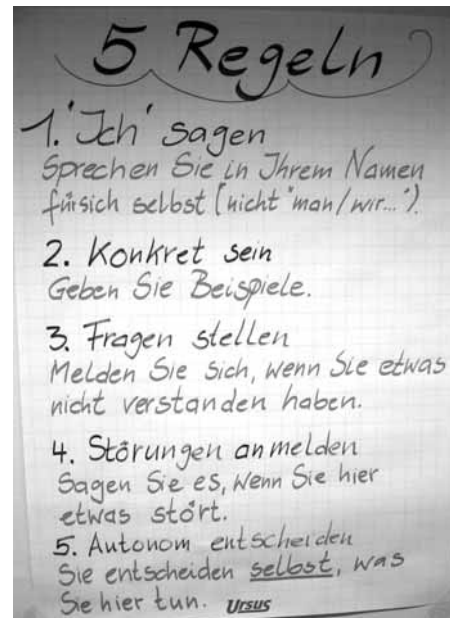 5 Regeln
1. 'Ich' sagen
Sprechen Sie in Ihrem Namen
für sich selbst (nicht "man/wir...").
2. Konkret sein
Geben Sie Beispiele.
3. Fragen stellen
Melden Sie sich, wenn Sie etwas
nicht verstanden haben.
4. Störungen anmelden
Sagen Sie es, wenn Sie hier
etwas stört.
5. Autonom entscheiden
Sie entscheiden selbst, was
Sie hier tun. Ursus